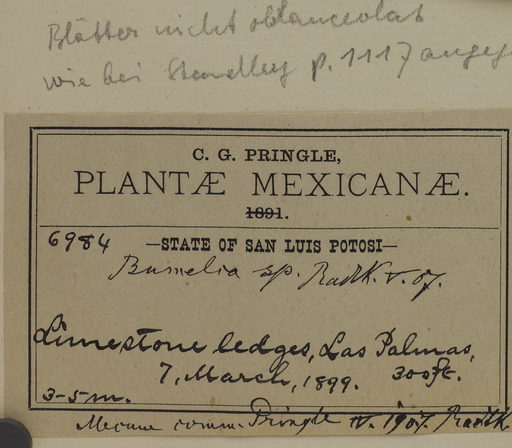 Blätter nicht oblanceolat
wie bei Standley p. 1117 angeg
C. G. PRINGLE,
PLANTÆ MEXICANÆ.
1891.
6984 —STATE OF SAN LUIS POTOSI—
Bumelia sp. Radlk. v. 07.
Limestone ledges, Las Palmas,
7, March, 1899. 300 ft.
3-5 m.
Mecum comm. Pringle v. 1907. Radlk